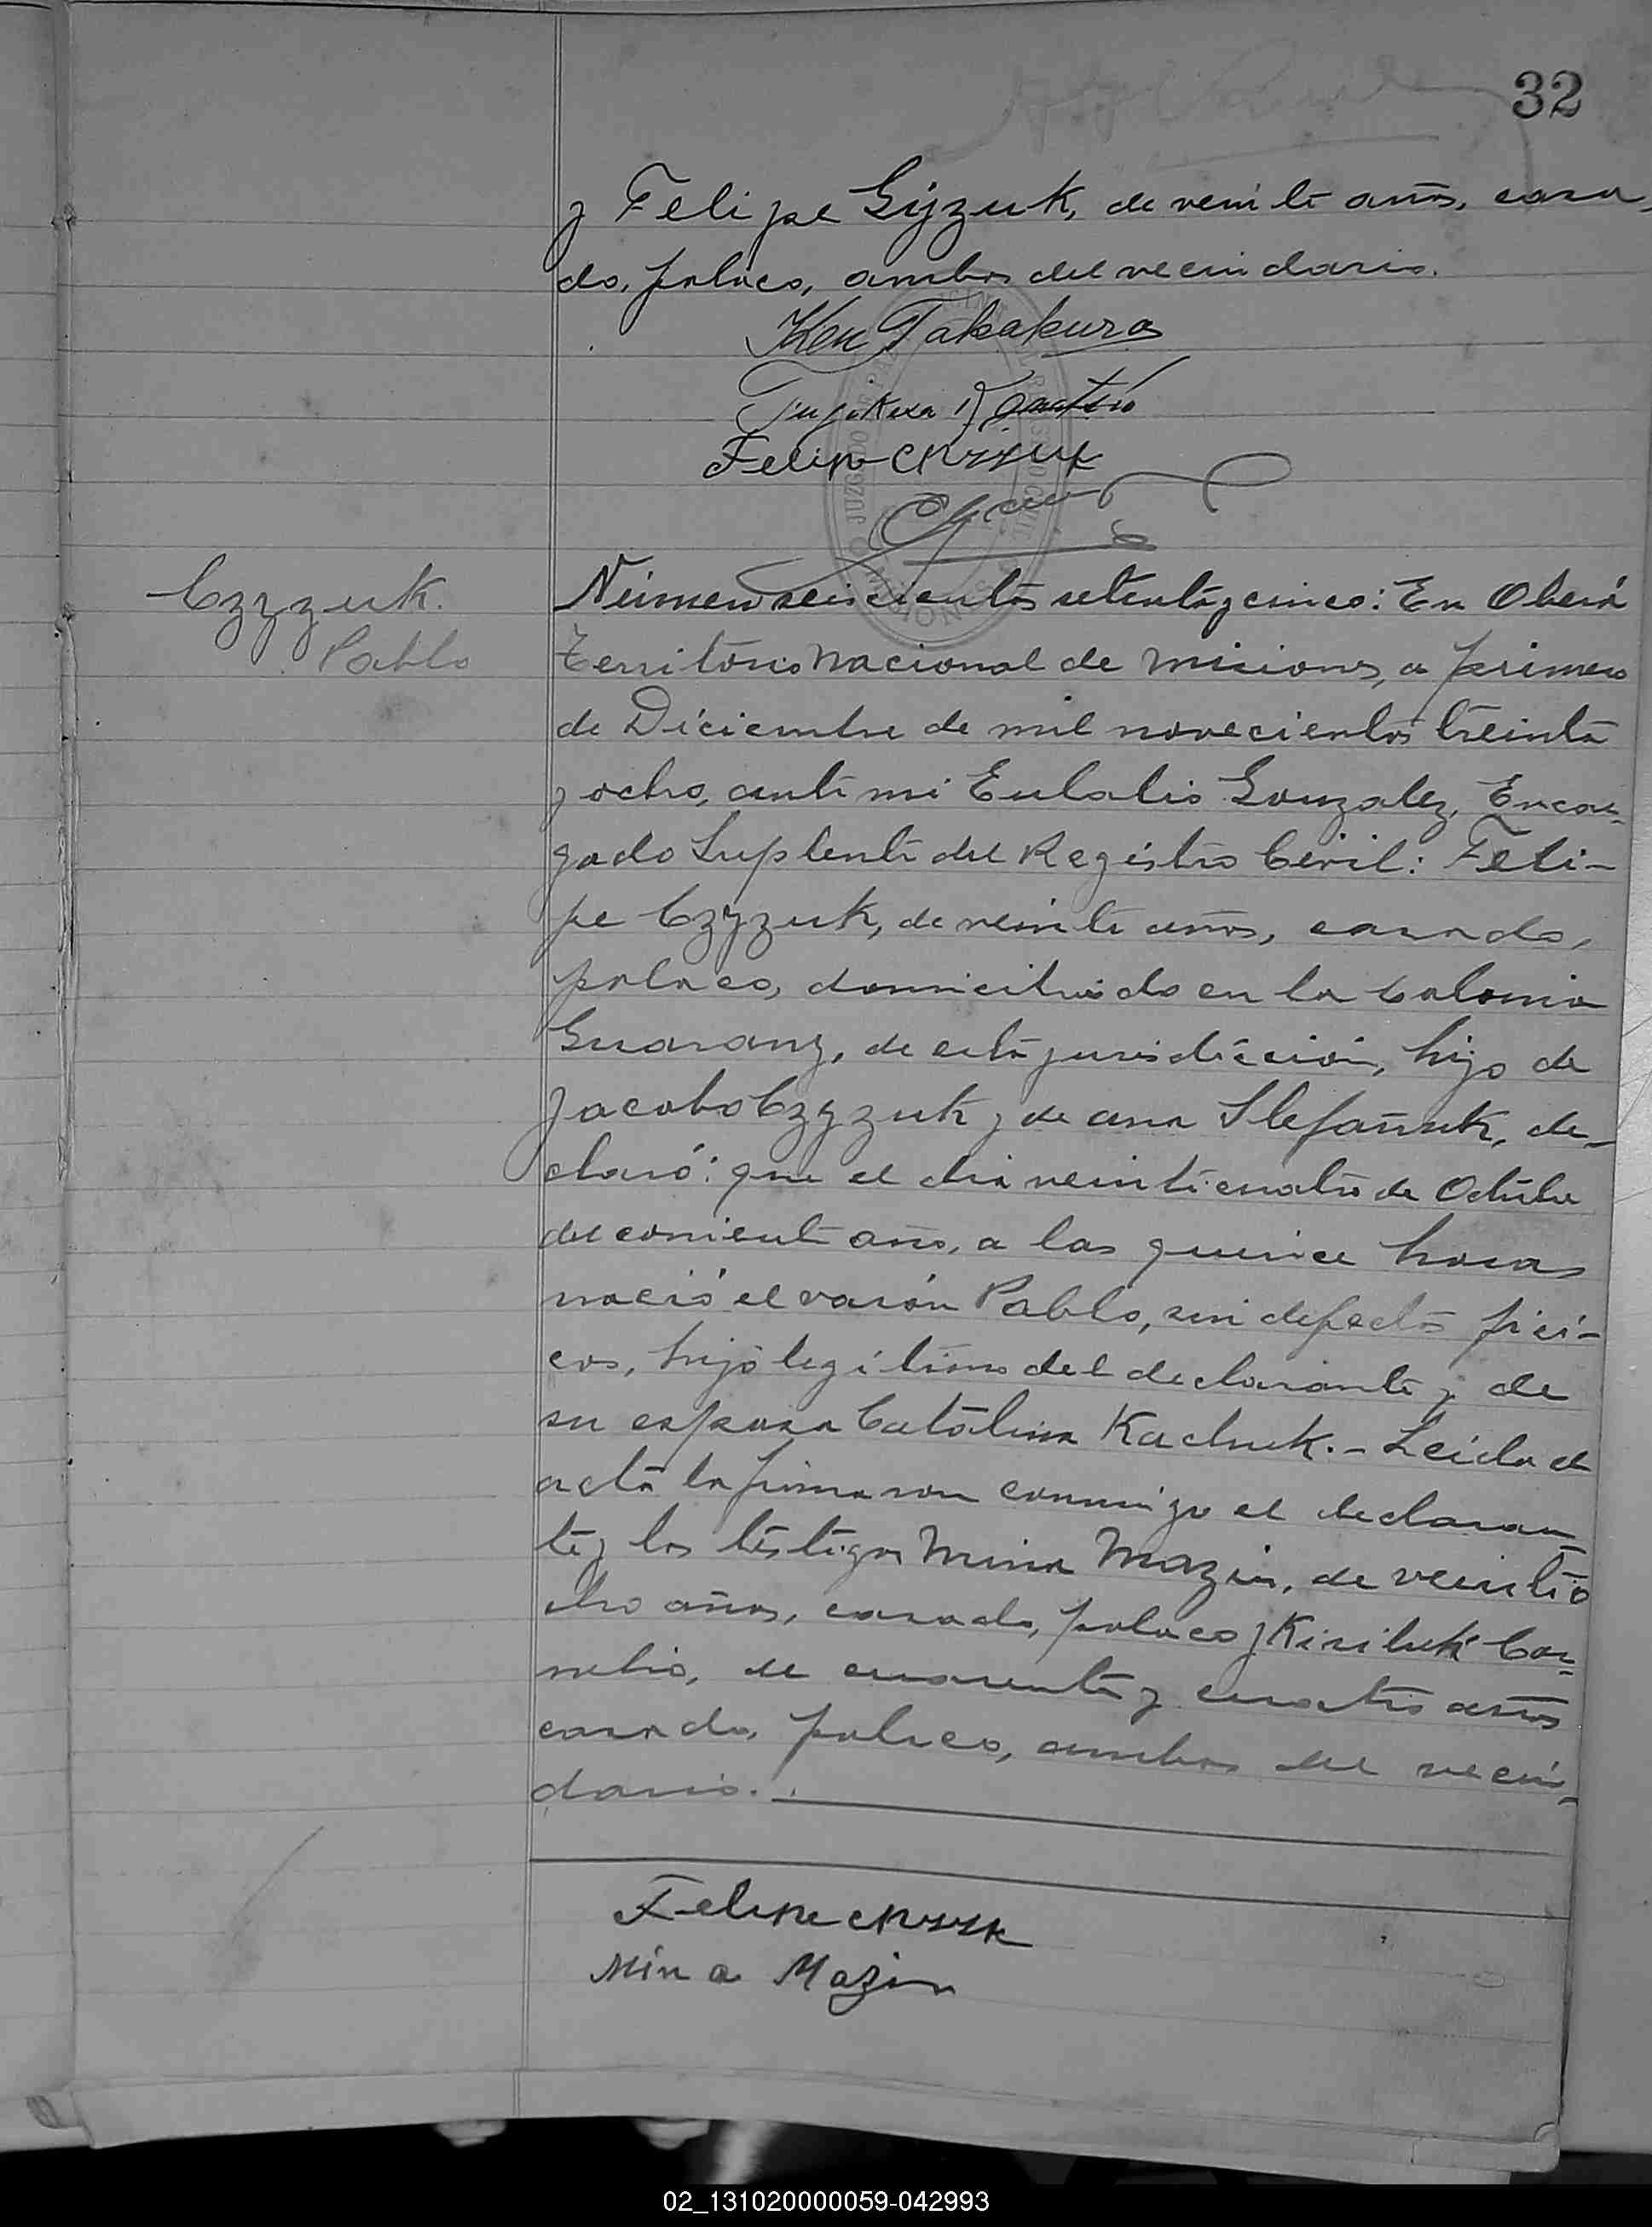 32
y Felipe Gÿzuk, de veinte años, casa
do, polaco, ambos del vecindario.
Ken Takakura
Felipe
JUZGADO DE PAZ
MISIONES
Czyzuk.
Pablo
Número seiscientos setenta y cinco: En Oberá
Territorio Nacional de Misiones, a primero
de Diciembre de mil novecientos treinta
y ocho, ante mi Eulalio Gonzalez, Encar-
gado Suplente del Registro Civil: Feli-
pe Czyzuk, de veinte años, casado,
polaco, domiciliado en la Colonia
Guarany, de esta jurisdicción, hijo de
Jacobo Czyzuk y de Ana Stefañuk, de-
claró: que el dia veinticuatro de Octubre
del corriente año, a las quince horas
nació el varón Pablo, sin defectos fisi-
cos, hijo legitimo del declarante y de
su esposa Catalina Kachuk.- Leida el
acta la firmaron conmigo el declaran-
te y los testigos Mina Mazin, de veintio
cho años, casado, polaco y Kiriluk Cor-
nelio, de cuarenta y cuatro años
casado, polaco, ambos del vecin-
dario.
Felipe
Mina Mazin
02_131020000059-042993